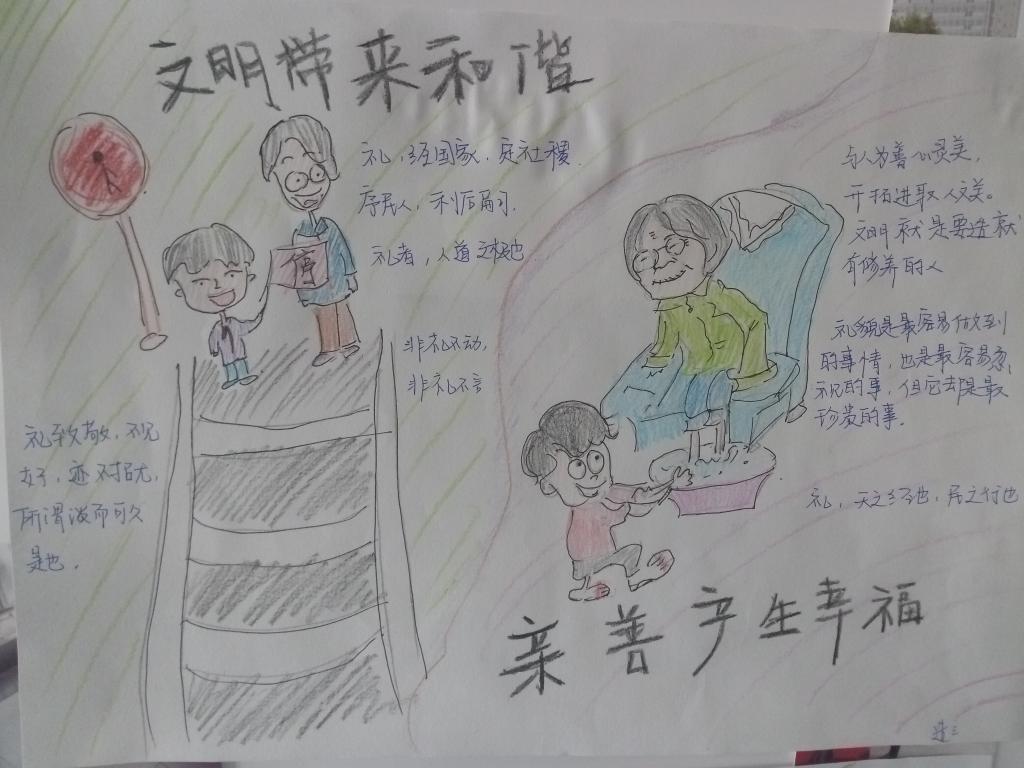 文明带来和谐
礼，经国家，定社稷，
序民人，利后嗣.
礼者，人道之极也
非礼不动，
非礼不言
值
礼致敬，不见
好，迹不招尤，
所谓淡而可久
是也.
与人为善心灵美，
开拓进取人文美。
文明就是要造就
有修养的人
礼貌是最容易做到
的事情，也是最容易忽
视的事，但它却是最
珍贵的事.
礼，天之经也，民之行也
亲善产生幸福